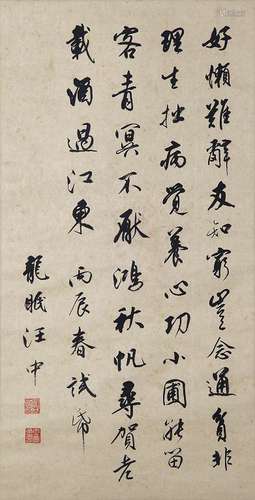 好懶難辭友知窮豈念通貧非
理生拙病覺養心功小圃能留
客青冥不厭鴻秋帆尋賀老
載酒過江東 丙辰春試筆
龍眠汪中